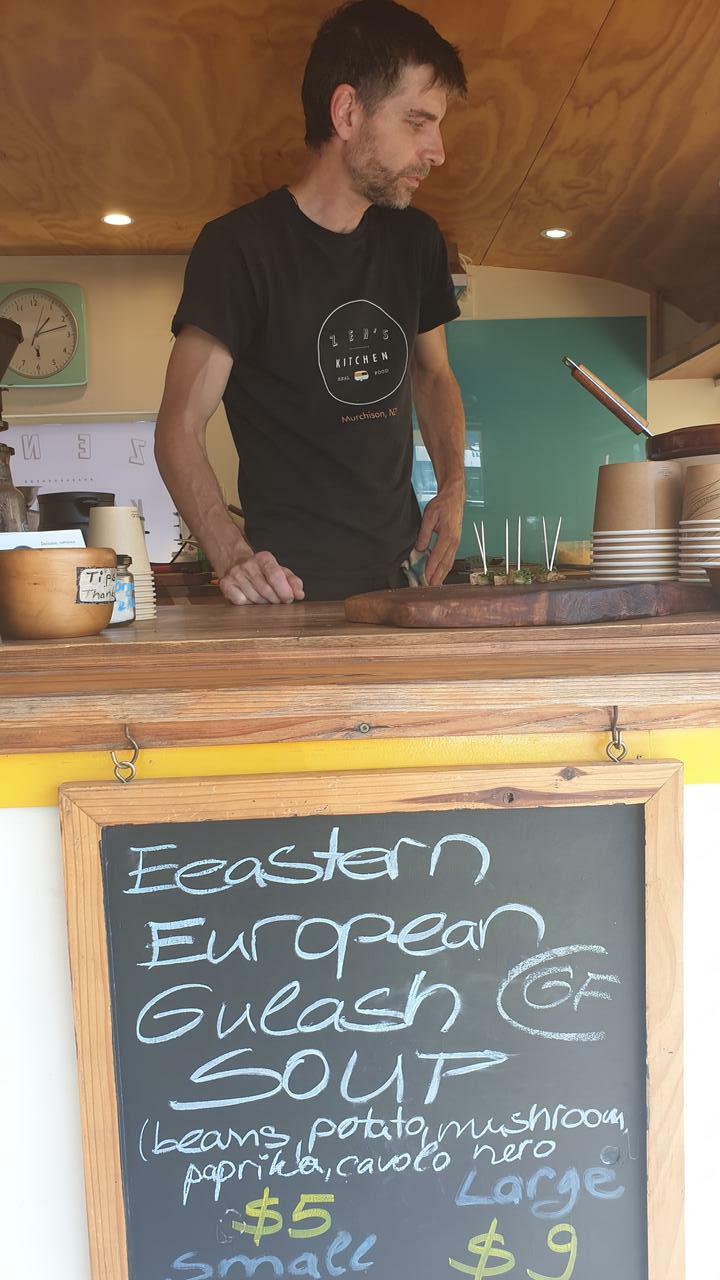 12
1
2
ZEN'S
KITCHEN
REAL FOOD
Murchison, NZ
ZEN
K
Tips
Thank
Eeastern
European
Gulash GF
SOUP
(beans, potato, mushroom,
paprika, cavolo nero
Large
$5
small
$9